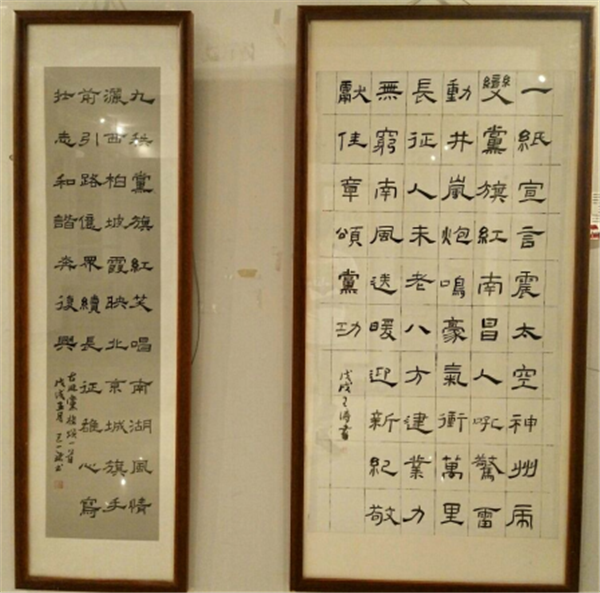 一紙宣言震太空神州
變黨旗紅南昌人吼驚雷
動井嵐炮鳴豪氣衝萬里
長征人未老八方建業力
無窮南風送暖迎新紀敬
獻佳章頌黨功
戊戌王涛書
九秩黨旗紅笑唱南湖風情
灑西柏坡霞映北京城旗手
前引路億眾續長征雄心寫
壯志和諧奔復興
黨旗頌一首
戊戌五月